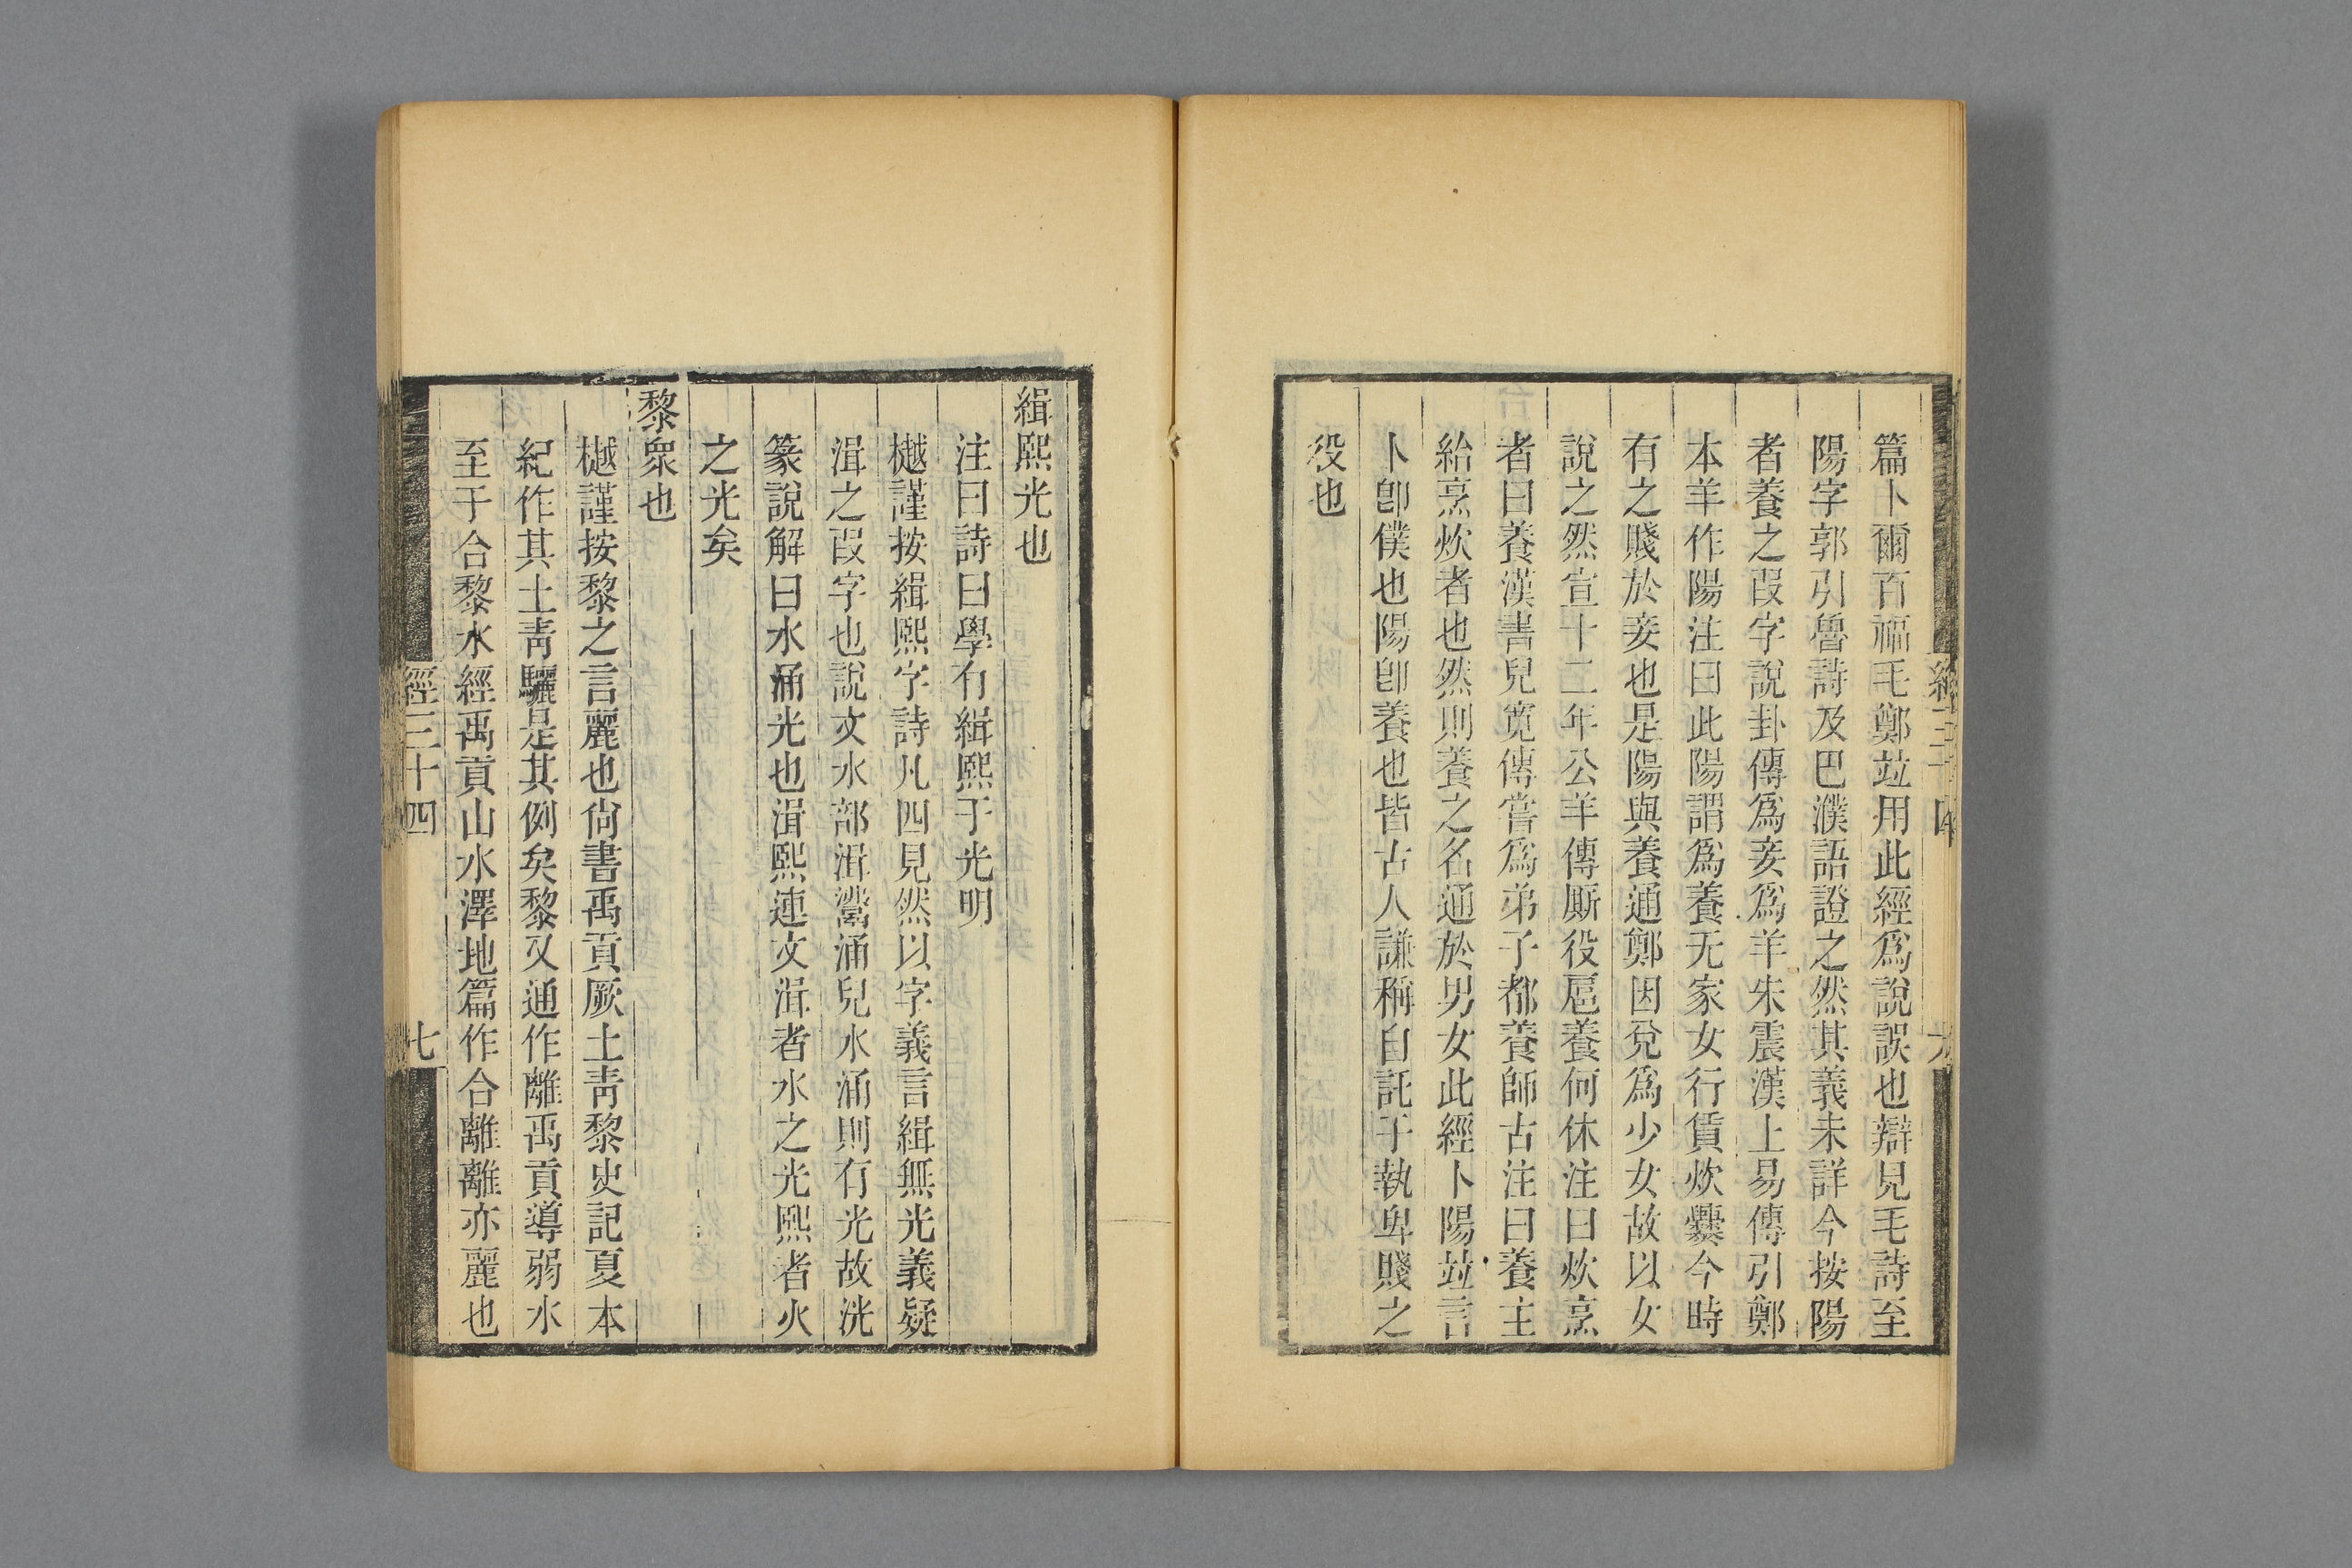 篇卜爾百福毛鄭竝用此經爲說誤也辯見毛詩至
陽字郭引魯詩及巴濮語證之然其義未詳今按陽
者養之叚字說卦傳爲妾爲羊朱震漢上易傳引鄭
本羊作陽注曰此陽謂爲養无家女行賃炊爨今時
有之賤於妾也是陽與養通鄭因兌爲少女故以女
說之然宣十二年公羊傳厮役扈養何休注曰炊烹
者曰養漢書兒寬傳嘗爲弟子都養師古注曰養主
給烹炊者也然則養之名通於男女此經卜陽竝言
卜卽僕也陽卽養也皆古人謙稱自託于執卑賤之
役也
緝熙光也
注曰詩曰學有緝熙于光明
樾謹按緝熙字詩凡四見然以字義言緝無光義疑
湒之叚字也說文水部湒鬻涌皃水涌則有光故洸
篆說解曰水涌光也湒熙連文湒者水之光熙者火
之光矣
黎衆也
樾謹按黎之言麗也尙書禹貢厥土靑黎史記夏本
紀作其土靑驪是其例矣黎又通作離禹貢導弱水
至于合黎水經禹貢山水澤地篇作合離離亦麗也
經三十四
七